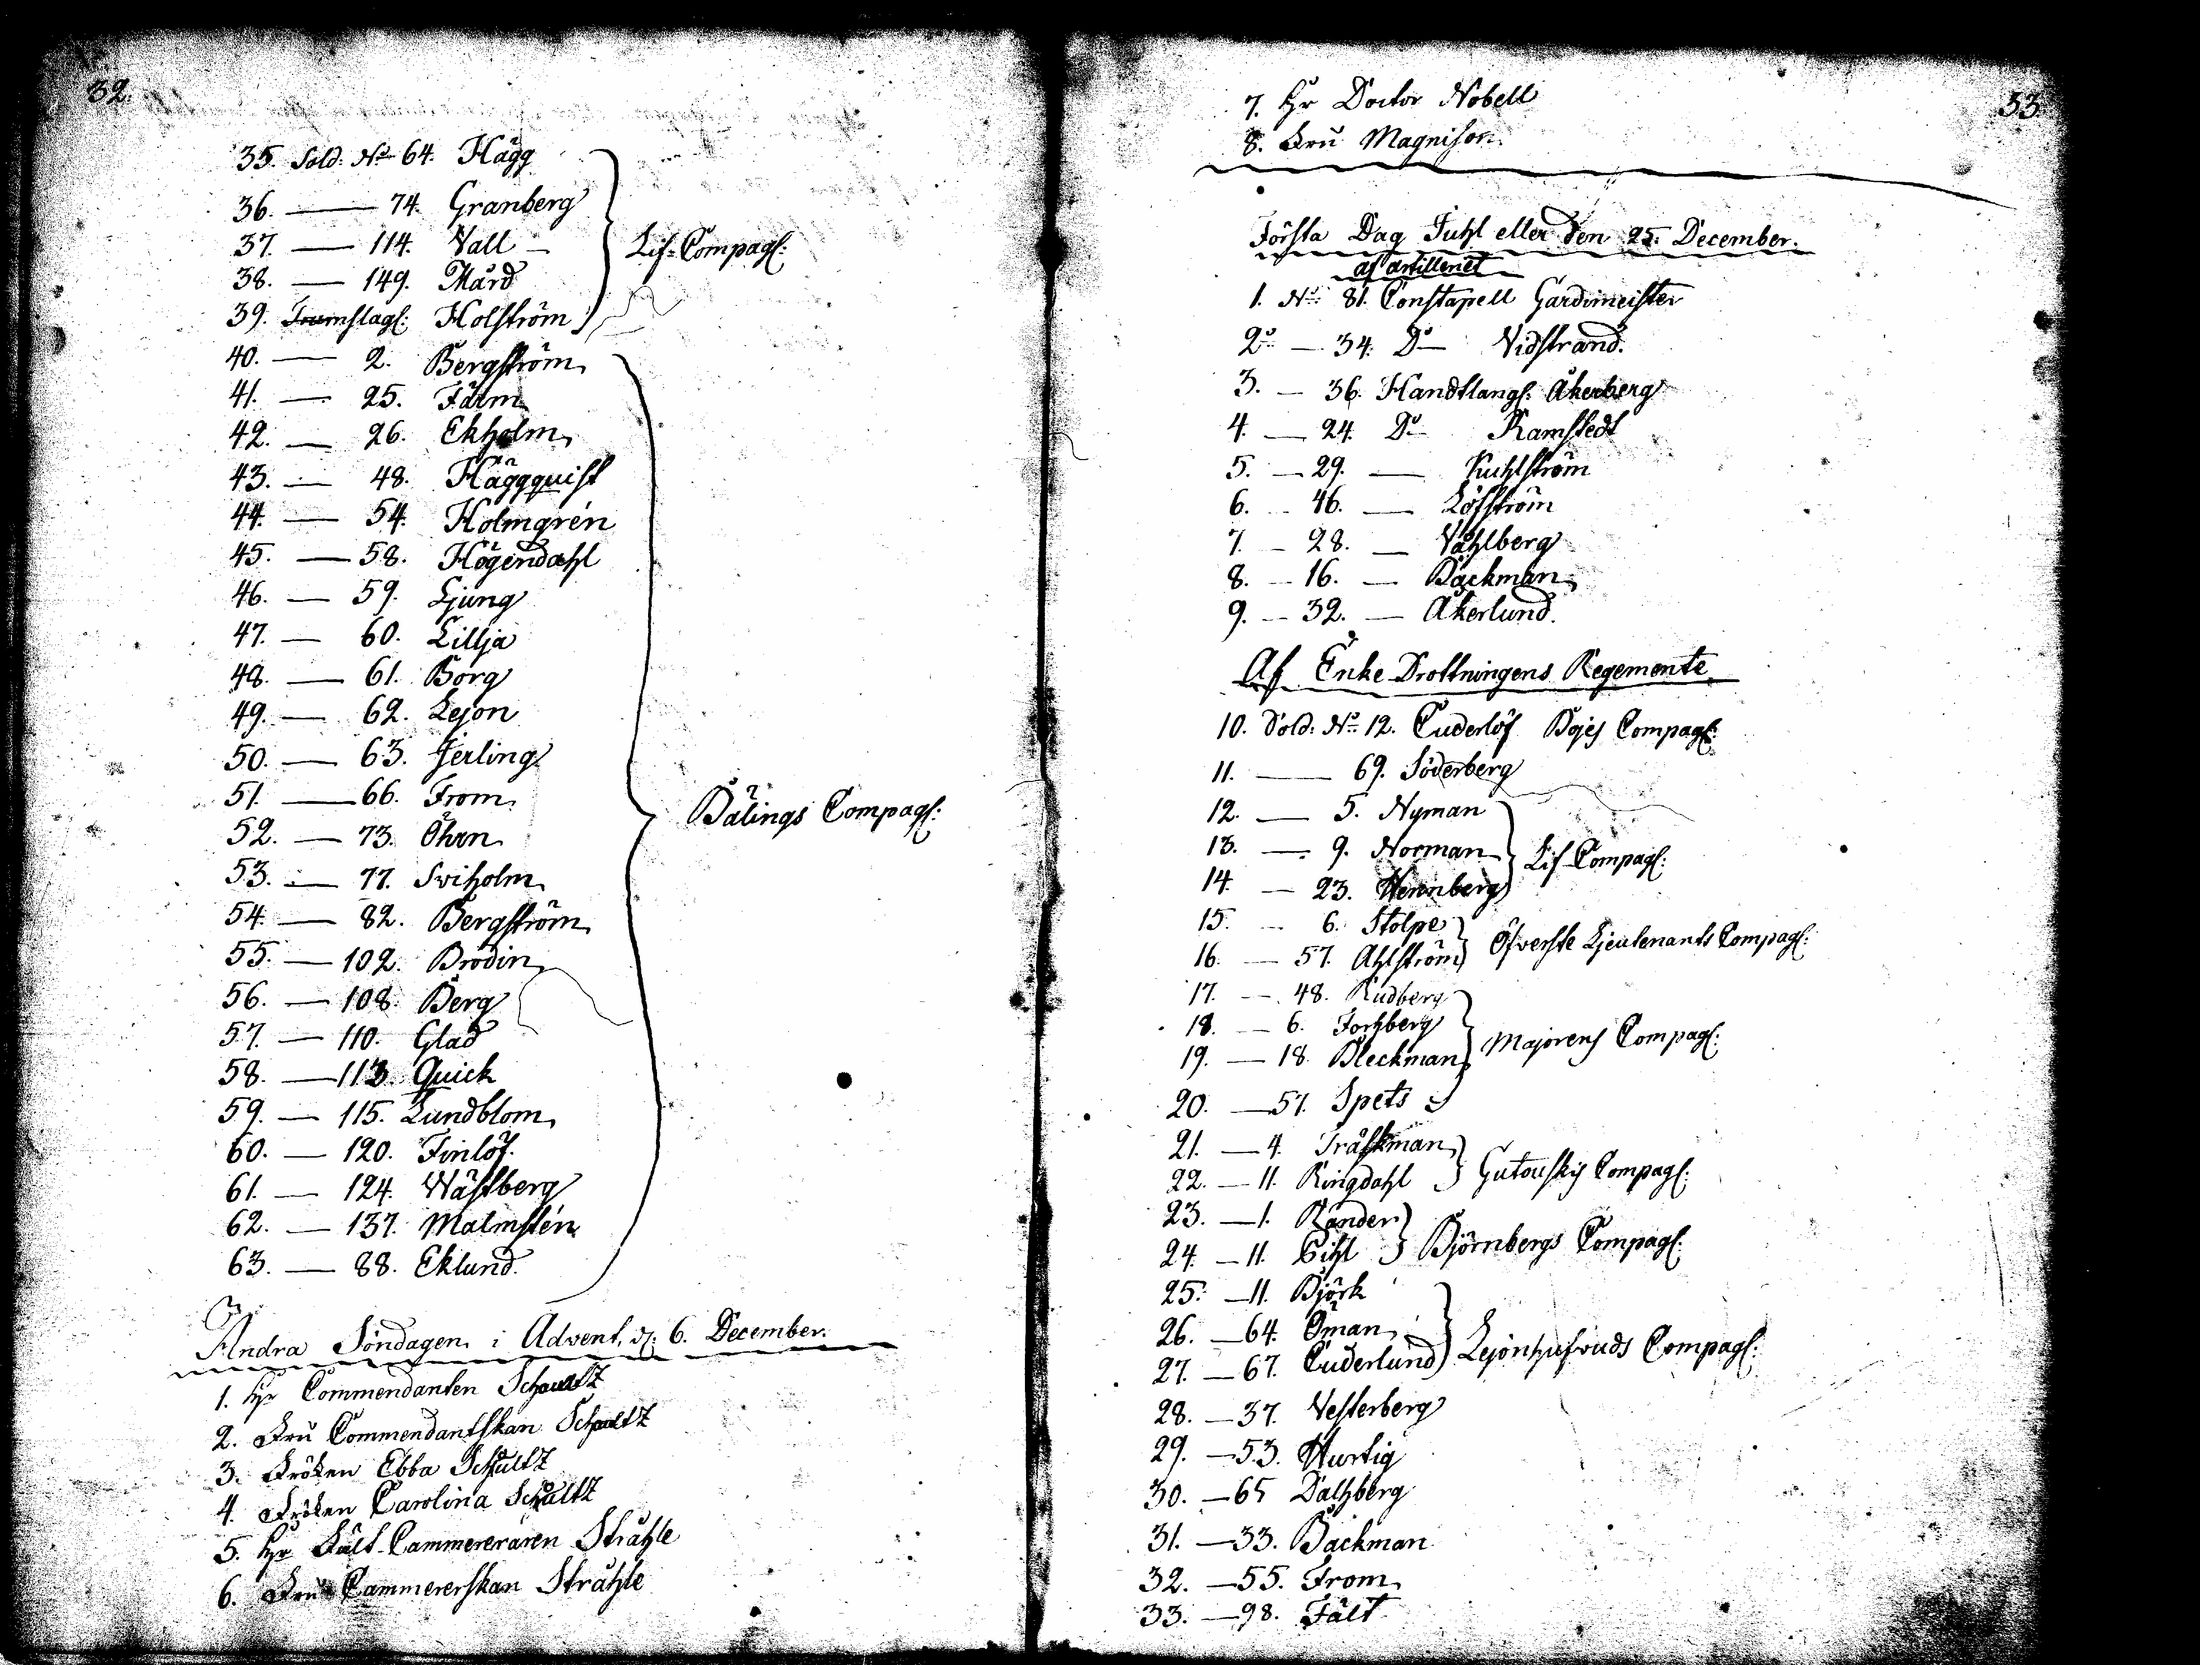 32.
35. Sold: No 64. Hägg
36. — 74. Granberg
37. — 114. Vall —
38. — 149. Mård
Lif-Compag:
39. Trumslag: Holström
40. — 2. Bergström
41. — 25. Färm
42. — 26. Ekholm
43. — 48. Häggquist
44. — 54. Holmgrén
45. — 58. Högendahl
46. — 59. Ljung
47. — 60. Lillja
48. — 61. Borg
49. — 62. Lejon
50. — 63. Jerling
51. — 66. From
52. — 73. Öhrn
Bälings Compag:
53. — 77. Sviholm
54. — 82. Bergström
55. — 102. Brodin
56. — 108. Berg
57. — 110. Glad
58. — 113. Quick
59. — 115. Lundblom
60. — 120. Finlöf.
61. — 124. Wästberg
62. — 137. Malmstén
63. — 88. Eklund.
Andra Söndagen i Advent, d: 6. December.
1. Hr Commendanten Schultz
2. Fru Commendantskan Schultz
3. Fröken Ebba Schultz
4. Fröken Carolina Schultz
5. Hr Fält-Cammereraren Stråhle
6. Fru Cammererskan Stråhle
33
7. Hr Doctor Nobell
8. Fru Magnison
Första Dag Juhl eller den 25. December.
af artilleriet
1. No 81. Constapell Gardimeister
2. — 34. Do Vidstrand.
3. — 36. Handtlang: Åkerberg
4. — 24. Do Ramstedt
5. — 29. — Kuhlström
6. — 46. — Löfström
7. — 28. — Vahlberg
8. — 16. — Bäckman
9. — 32. — Åkerlund.
Af Enke Drottningens Regemente
10. Sold: No 12. Cuderlöf Bojes Compag:
11. — 69. Söderberg
12. — 5. Nyman
13. — 9. Norman
Lif-Compag:
14. — 23. Wennberg
15. — 6. Stolpe
16. — 57. Ahlström
Öfverste Ljeutenants Compag:
17. — 48. Rudberg
18. — 6. Forsberg
19. — 18. Bleckman
Majorens Compag:
20. — 57. Spets
21. — 4. Träskman
22. — 11. Ringdahl
Gutouskis Compag:
23. — 1. Rander
24. — 11. Pihl
Björnbergs Compag:
25. — 11. Björk
26. — 64. Öman
27. — 67. Cuderlund
Lejonhufvuds Compag:
28. — 37. Vesterberg
29. — 53. Hurtig
30. — 65 Dahlberg
31. — 33. Bäckman
32. — 55. From
33. — 98. Fält